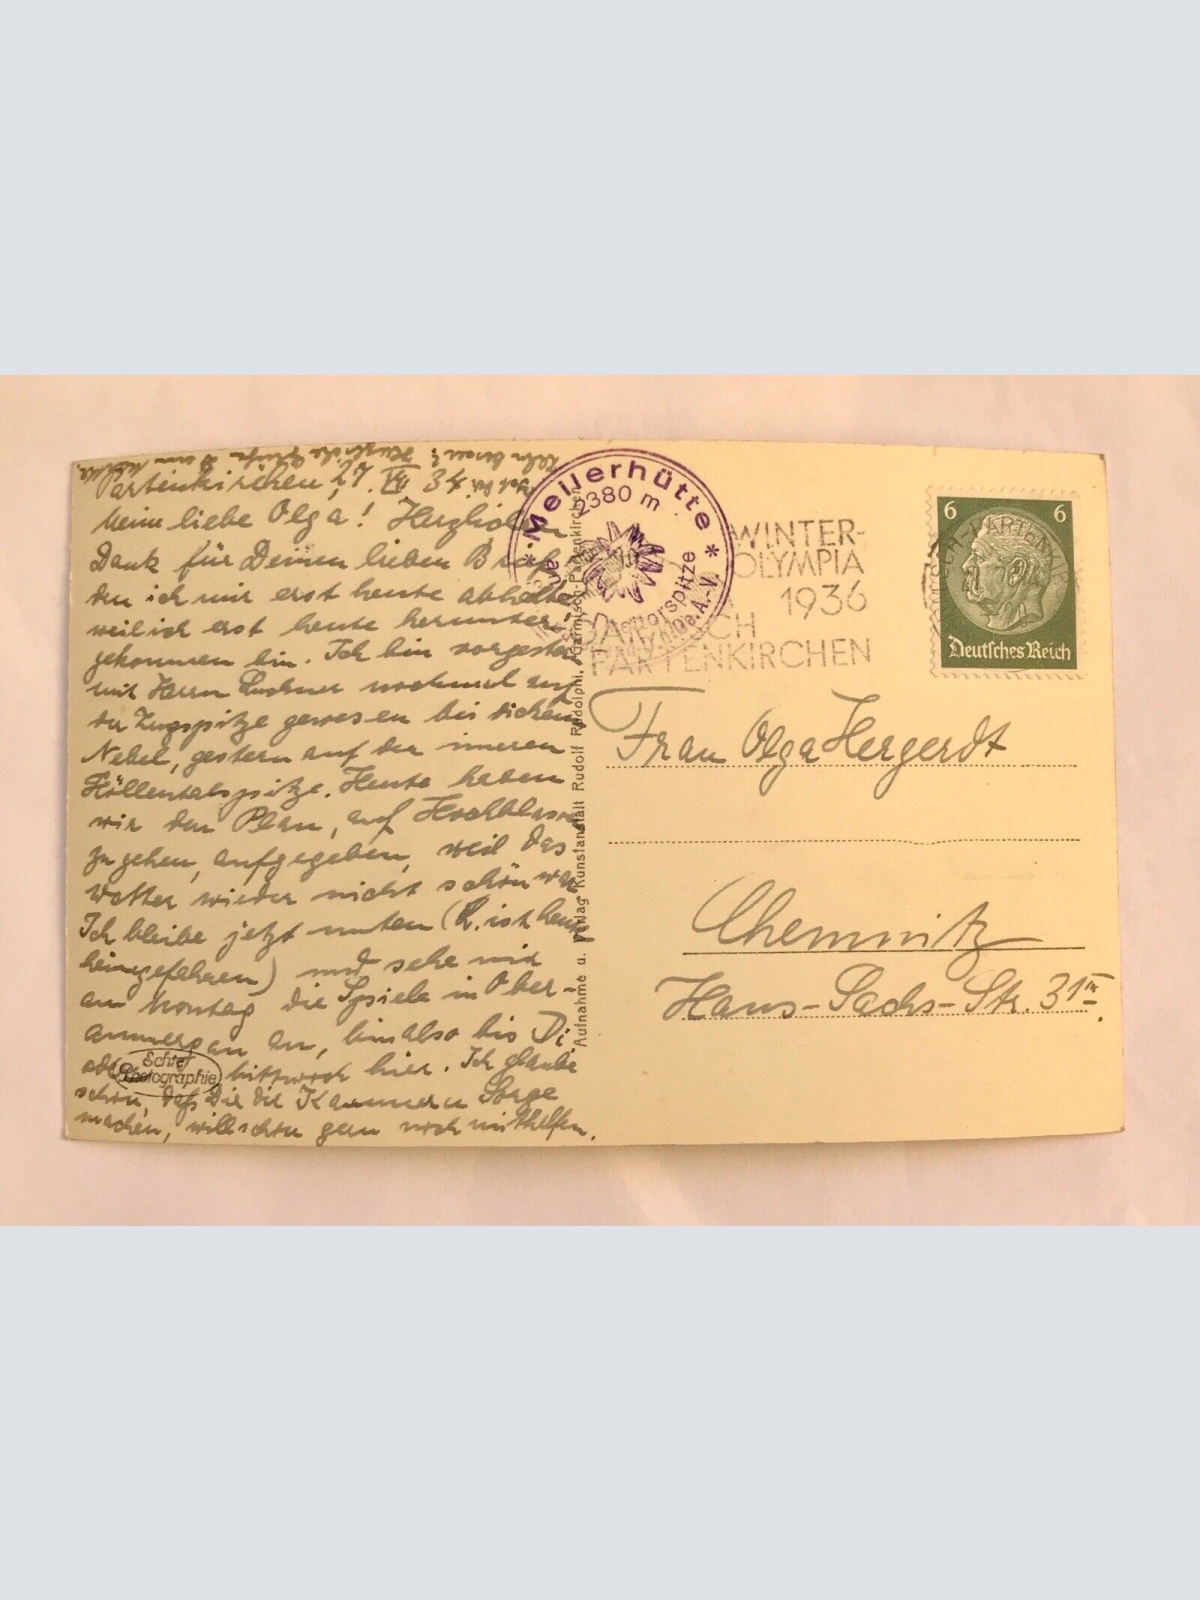 Partenkirchen, 27. VII 34
Meine liebe Olga! Herzlichen
Dank für Deinen lieben Brief
den ich mir erst heute abholte
weil ich erst heute herunter-
gekommen bin. Ich bin vorgestern
mit Herrn nochmal auf
der Zugspitze gewesen bei dichem
Nebel, gestern auf der inneren
Höllentalspitze. Heute haben
wir den Plan, auf Hochblassen
zu gehen, aufgegeben, weil das
Wetter wieder nicht schön war
Ich bleibe jetzt unten (L. ist heute
heimgefahren) und sehe mir
am Montag die Spiele in Ober-
ammergau an, bin also bis Di.
oder Mittwoch hier. Ich glaube
schon, daß Dir die Kammern Sorge
machen, will schon gern noch mithelfen.
Echte
Photographie
Aufnahme u. Verlag Kunstanstalt Rudolf Rudolphi, Garmisch-Partenkirchen
* Meilerhütte *
2380 m
WINTER-
OLYMPIA
1936
GARMISCH
PARTENKIRCHEN
6 6
Deutsches Reich
Frau Olga Hergerdt
Chemnitz
Hans-Sachs-Str. 31 III.